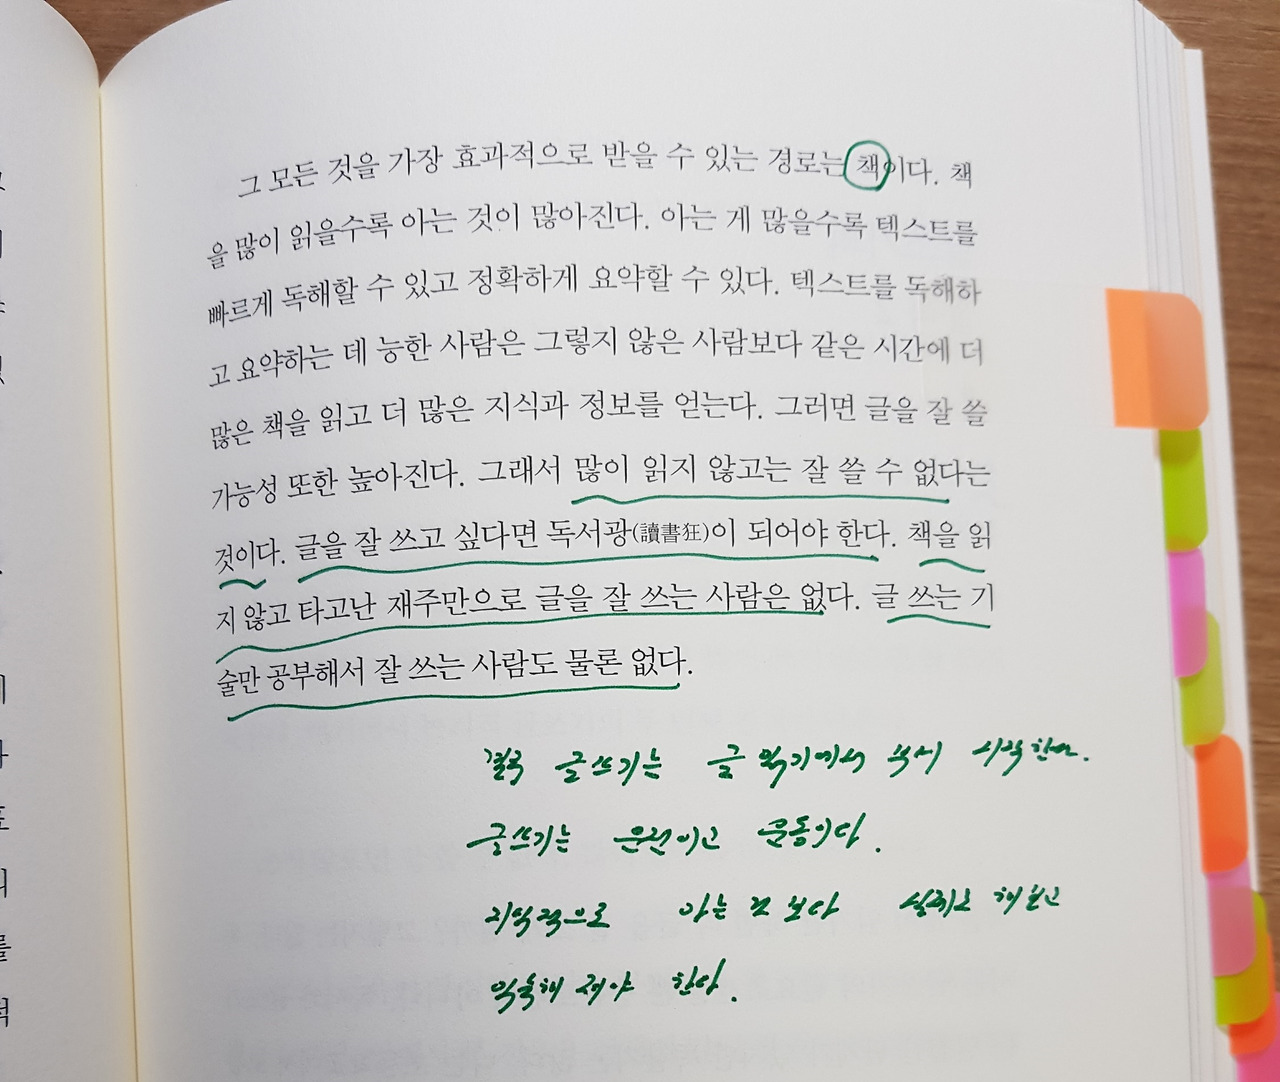 그 모든 것을 가장 효과적으로 받을 수 있는 경로는 책이다. 책
을 많이 읽을수록 아는 것이 많아진다. 아는 게 많을수록 텍스트를
빠르게 독해할 수 있고 정확하게 요약할 수 있다. 텍스트를 독해하
고 요약하는 데 능한 사람은 그렇지 않은 사람보다 같은 시간에 더
많은 책을 읽고 더 많은 지식과 정보를 얻는다. 그러면 글을 잘 쓸
가능성 또한 높아진다. 그래서 많이 읽지 않고는 잘 쓸 수 없다는
것이다. 글을 잘 쓰고 싶다면 독서광(讀書狂)이 되어야 한다. 책을 읽
지 않고 타고난 재주만으로 글을 잘 쓰는 사람은 없다. 글 쓰는 기
술만 공부해서 잘 쓰는 사람도 물론 없다.
결국 글쓰기는 글 읽기에서 부터 시작한다.
글쓰기는 훈련이고 운동이다.
지식적으로 아는 것 보다 실제로 해보고
익숙해 져야 한다.